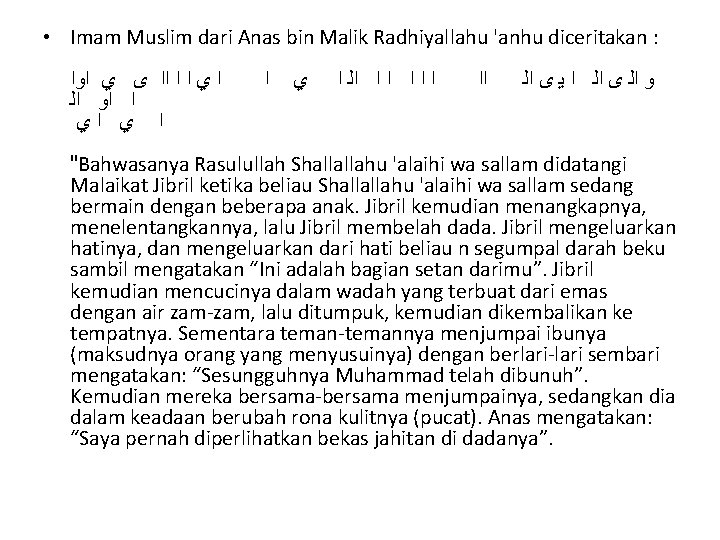 • Imam Muslim dari Anas bin Malik Radhiyallahu 'anhu diceritakan :
"Bahwasanya Rasulullah Shallallahu 'alaihi wa sallam didatangi
Malaikat Jibril ketika beliau Shallallahu 'alaihi wa sallam sedang
bermain dengan beberapa anak. Jibril kemudian menangkapnya,
menelentangkannya, lalu Jibril membelah dada. Jibril mengeluarkan
hatinya, dan mengeluarkan dari hati beliau n segumpal darah beku
sambil mengatakan “Ini adalah bagian setan darimu”. Jibril
kemudian mencucinya dalam wadah yang terbuat dari emas
dengan air zam-zam, lalu ditumpuk, kemudian dikembalikan ke
tempatnya. Sementara teman-temannya menjumpai ibunya
(maksudnya orang yang menyusuinya) dengan berlari-lari sembari
mengatakan: “Sesungguhnya Muhammad telah dibunuh”.
Kemudian mereka bersama-bersama menjumpainya, sedangkan dia
dalam keadaan berubah rona kulitnya (pucat). Anas mengatakan:
“Saya pernah diperlihatkan bekas jahitan di dadanya”.